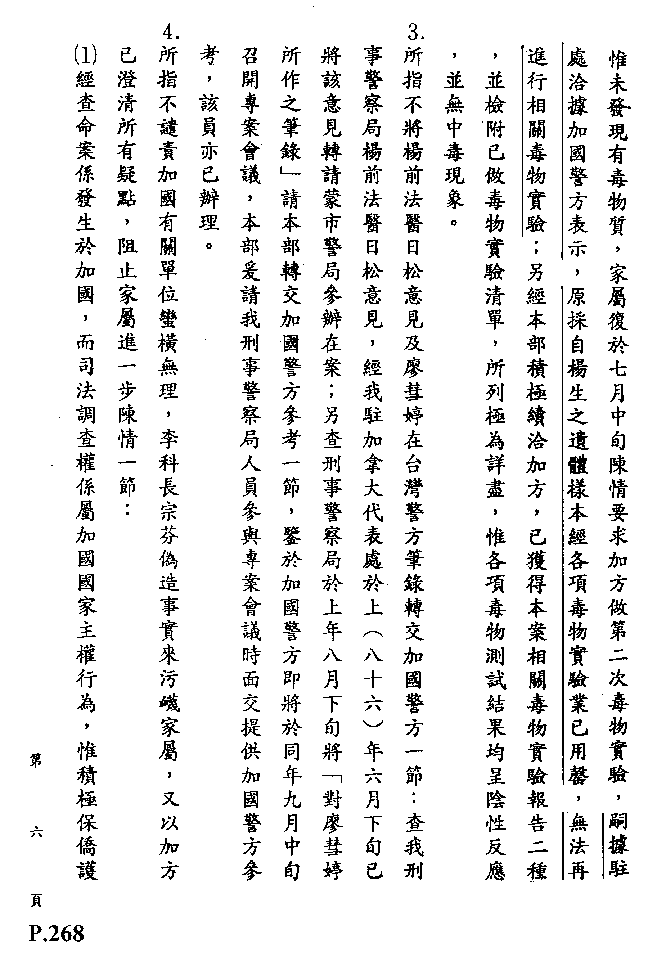 惟未發現有毒物質，家屬復於七月中旬陳情要求加方做第二次毒物實驗，嗣據駐
處洽據加國警方表示，原採自楊生之遺體樣本經各項毒物實驗業已用罄，無法再
進行相關毒物實驗；另經本部積極續洽加方，已獲得本案相關毒物實驗報告二種
，並檢附已做毒物實驗清單，所列極為詳盡，惟各項毒物測試結果均呈陰性反應
，並無中毒現象。
3.所指不將楊前法醫日松意見及廖彗婷在台灣警方筆錄轉交加國警方一節：查我刑
事警察局楊前法醫日松意見，經我駐加拿大代表處於上（八十六）年六月下旬已
將該意見轉請蒙市警局參辦在案；另查刑事警察局於上年八月下旬將「對廖彗婷
所作之筆錄」請本部轉交加國警方參考一節，鑒於加國警方即將於同年九月中旬
召開專案會議，本部爰請我刑事警察局人員參與專案會議時面交提供加國警方參
考，該員亦已辦理。
4.所指不譴責加國有關單位蠻橫無理，李科長宗芬偽造事實來污衊家屬，又以加方
已澄清所有疑點，阻止家屬進一步陳情一節：
(1)經查命案係發生於加國，而司法調查權係屬加國國家主權行為，惟積極保僑護
第六頁
P.268